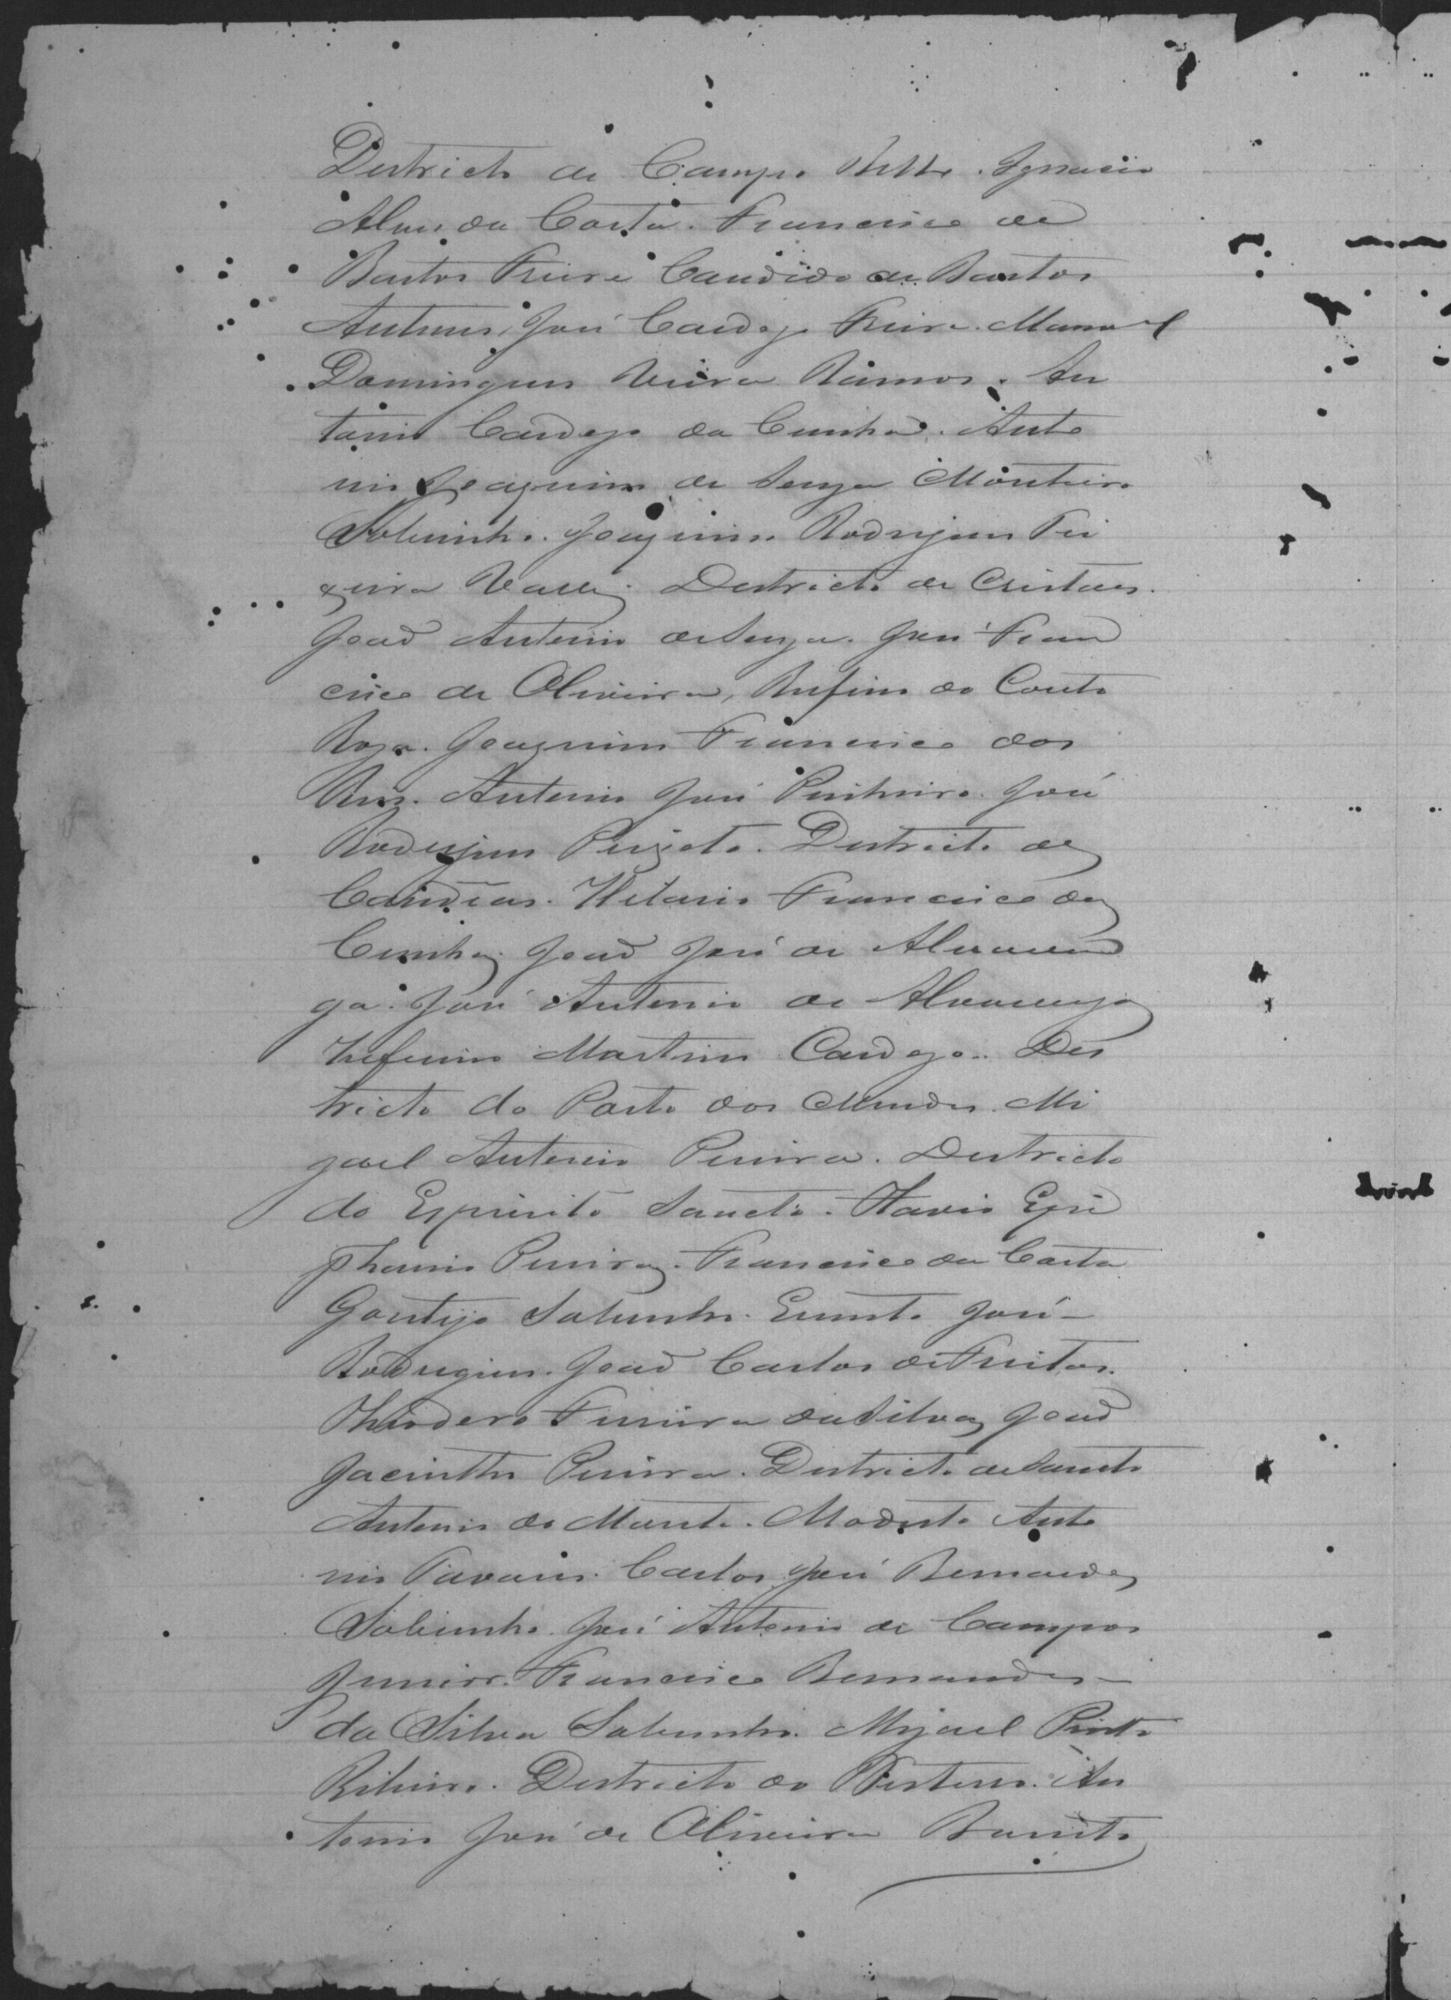 Districto de Campo Bello. Ignacio
Alves da Costa. Francisco de
Bastos Freire Candido de Bastos
Antunes, José Cardozo Freire. Manoel
Domingues Vieira Ramos. An
tonio Cardozo da Cunha. Anto
nio Joaquim de Souza Monteiro
Sobrinho. Joaquim Rodrigues Tei
xeira Valle. Districto de Cristaes.
João Antonio de Souza. José Fran
cisco de Oliveira, Rufino do Couto
Roza. Joaquim Francisco dos
Reis. Antonio José Pinheiro. José
Rodrigues Peixoto. Districto de
Candeias. Hilario Francisco da
Cunha, João José de Alvaren
ga. José Antonio de Alvarenga
Zeferino Martins Cardozo. Des
tricto do Porto dos Mendes. Mi
guel Antonio Pereira. Districto
do Espirito Sancto. Flavio Epi
phanio Pereira. Francisco da Costa
Gontijo Sobrinho. Ernesto José
Rodrigues. João Carlos de Freitas.
Theodoro Ferreira da Silva, João
Jacintho Pereira. Districto de Sancto
Antonio do Monte. Modesto Anto
nio Tavares. Carlos José Bernardes
Sobrinho. José Antonio de Campos
Junior. Francisco Bernardes
da Silva Sobrinho. Miguel Pinto
Ribeiro. Districto do An
tonio José de Oliveira Barreto